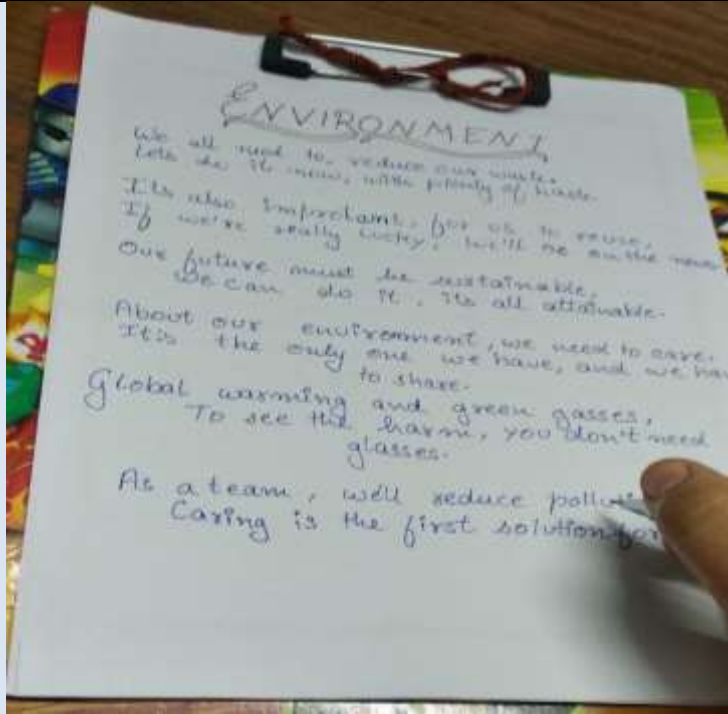 ENVIRONMENT
We all need to reduce our waste,
Lets do it now, with plenty of haste.
Its also important, for us to reuse,
If we're really lucky, we'll be on the news
Our future must be sustainable,
We can do it, its all attainable.
About our environment, we need to care.
It is the only one we have, and we hav
to share.
Global warming and green gasses,
To see the harm, you don't need
glasses.
As a team, we'll reduce pollu
Caring is the first solution for